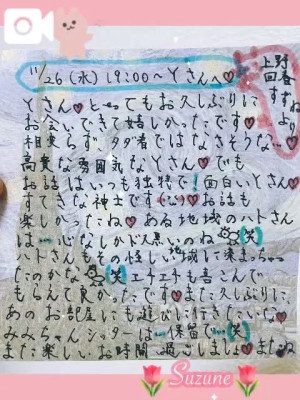 11/26(水)19:00〜Yさんへ♡
上野
すずね
より
Yさん♡とってもお久しぶりに
お会いできて嬉しかったです♡
相変らず、タダ者ではなさそうな…♡
高貴な雰囲気なYさん♡でも
お話はいつも独特で!面白いYさん♡
すてきな神士です(笑)♡お話も
楽しかったね♡ある地域のハトさん
は…心なしかドス黒いのね(笑)
ハトさんもその怪しい地域に染まっちゃっ
たのかな(笑)エチエチも喜こんで
もらえて良かったです♡また久しぶりに、
あのお部屋にも遊びに行きたいな♡
みみちゃんシッターは…保留で…(笑)
また楽しいお時間過ごしましょ♡またね♪
Suzune